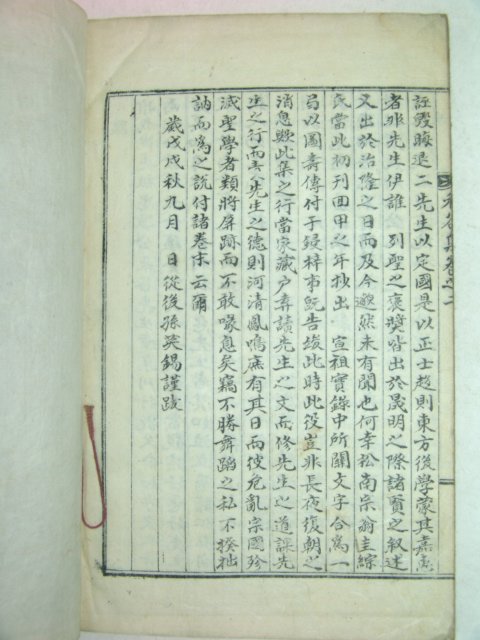 誣毀晦退二先生以定國是以正士趍則東方後學蒙其嘉惠
者非先生伊誰 列聖之褒奬皆出於晟明之際諸賢之叙述
又出於治隆之日而及今邈然未有聞也何幸松南宗翁圭綜
氏當此初刊回甲之年抄出 宣祖實錄中所關文字合爲一
局以圖壽傳付于鋟梓事旣告竣此時此役豈非長夜復朝之
消息歟此集之行當家藏戶弆讀先生之文而修先生之道課先
生之行而先生之德則河清鳳鳴庶有其日而彼危亂宗國殄
滅聖學者類將屛跡而不敢喙息矣竊不勝舞蹈之私不揆拙
訥而爲之說付諸卷末云爾
歲戊戌秋九月 日從後孫英錫謹跋
集卷之二